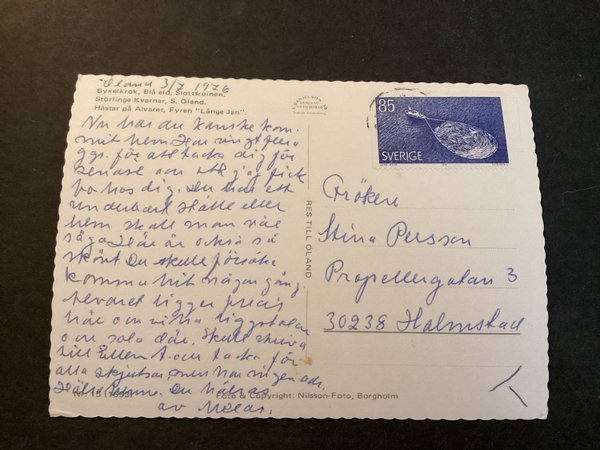 Öland 3/7 1976
Byxelkrok, Blå eld, Slottsruinen,
Störlinge Kvarnar, S. Öland.
Hästar på Alvaret, Fyren "Långe Jan".
Nu har du kanske kom-
mit hem. Har ringt flera
ggr. för att tacka dig för
senast och att jag fick
bo hos dig. Du har ett
underbart ställe eller
hem skall man väl
säga. Här är också så
skönt. Du skulle försöka
komma hit någon gång.
Havet ligger precis
här o vi har liggstolar
o en sola där. Skulle skriva
till Ellen o tacka för
alla skjutsar men har ingen adr.
Hälsa henne. Du hälsas
av
Foto & Copyright: Nilsson-Foto, Borgholm
RES TILL ÖLAND
85
SVERIGE
Fröken
Stina Persson
Propellergatan 3
30238 Halmstad